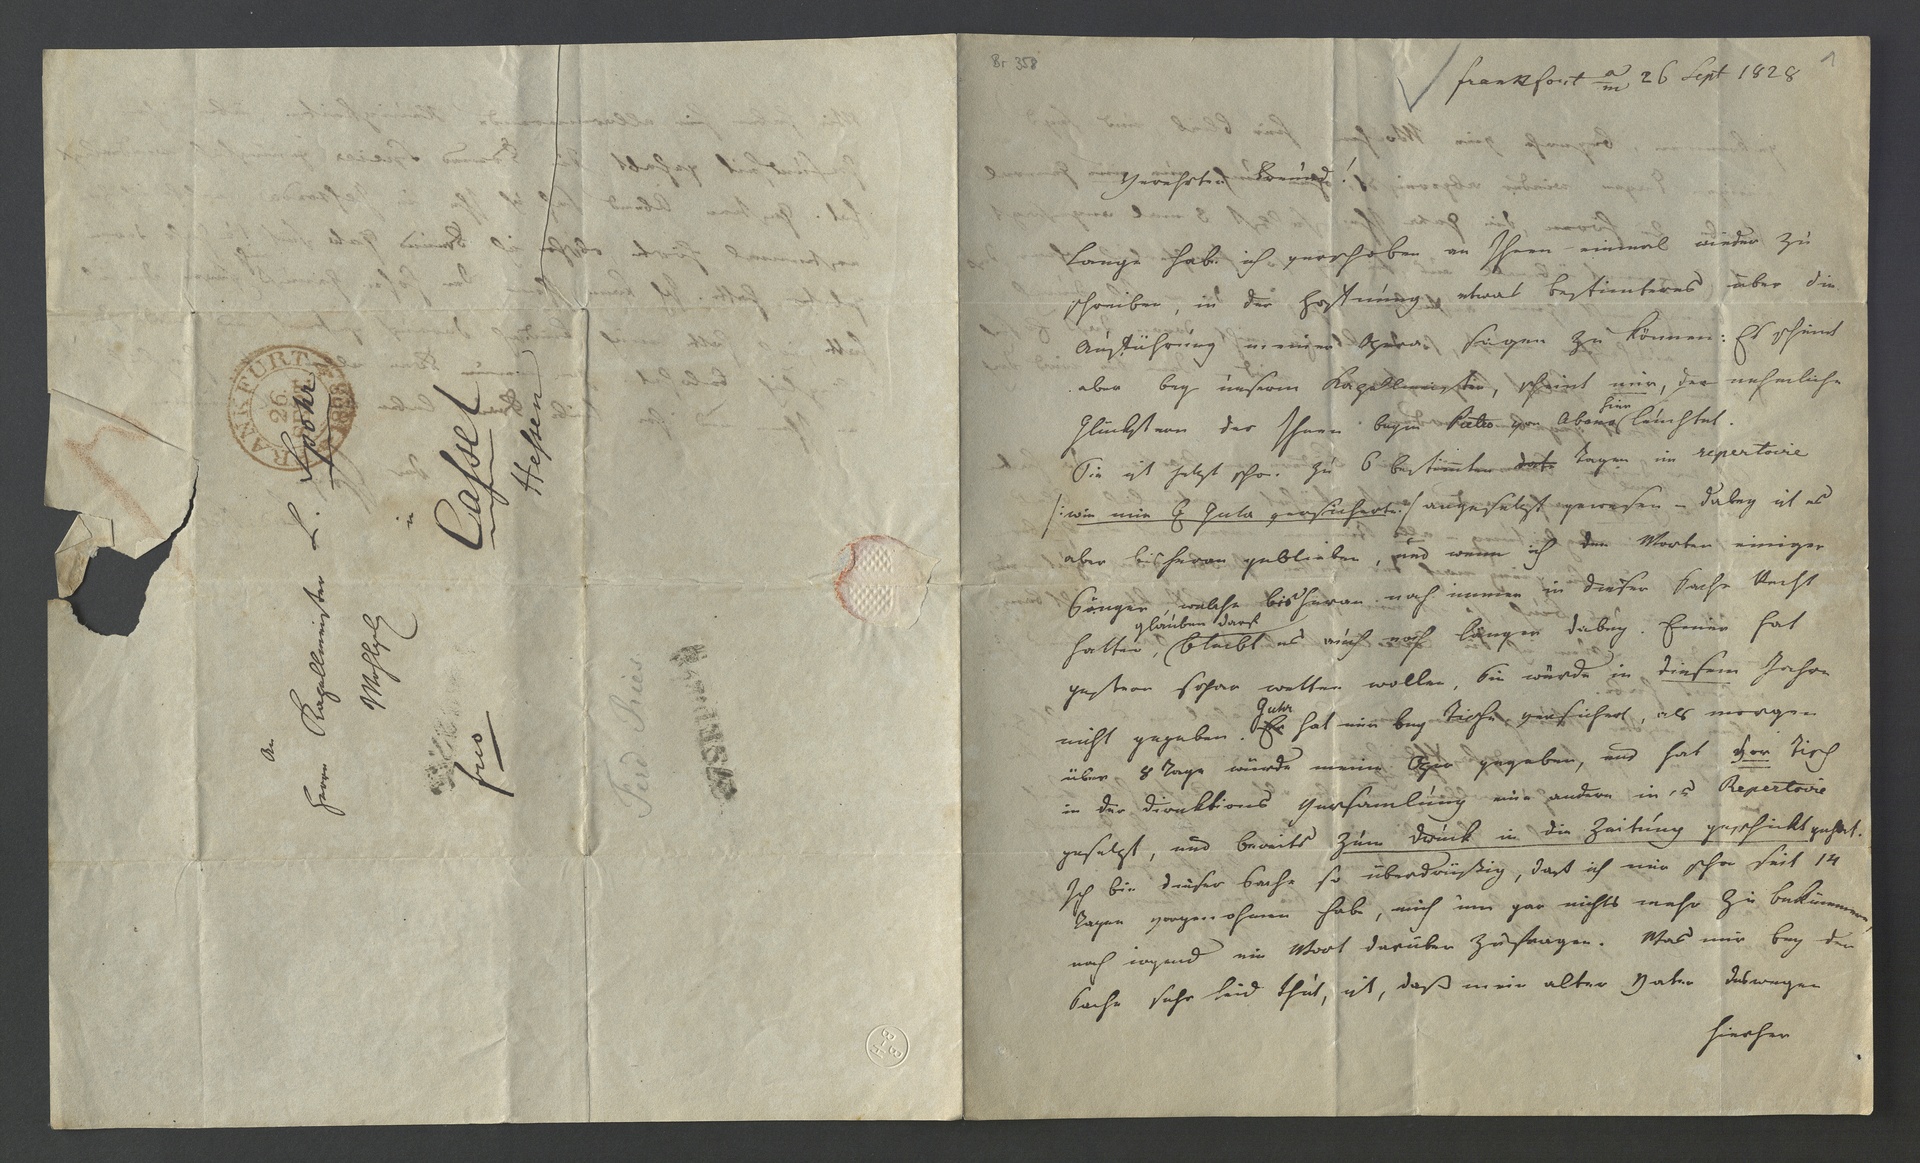 An
Herrn Kapellmeister L. Spohr
Wohlgb
in
Cassel
Hessen
frco
FRANKFURT
26
SEPT
1828
Ferd Ries
Br 358
1
frankfort a/m 26 Sept 1828
Verehrter Freund!
Lange habe ich verschoben an Ihnen einmal wieder zu
schreiben, in der Hoffnung etwas bestimteres über die
Aufführung meiner Oper sagen zu können: Es scheint
aber bey unserm Kapellmeister, scheint mir, der nehmliche
Glückstern der Ihnen beym Pietro von Abano hier leuchtet.
Sie ist jetzt schon zu 6 bestimten Tagen im repertoire
/: wie mir H Guhr versichert :/ angesetzt gewesen – dabey ist es
aber bisheran geblieben, und wenn ich den Worten einiger
Sänger, welche bisheran noch immer in dieser Sache Recht
hatten, glauben darf, bleibt es auch noch länger dabey. Einer hat
gestern sogar wetten wollen, Sie würde in diesem Jahre
nicht gegeben. Guhr hat mir bey Tische versichert, als morgen
über 8 Tage würde meine Oper gegeben, und hat vor Tisch
in der Direktions Versamlung eine andere in's Repertoire
gesetzt, und bereits zum Druck in die Zeitung geschickt gehabt.
Ich bin dieser Sache so überdrüßig, daß ich mir schon seit 14
Tagen vorgenohmen habe, mich um gar nichts mehr zu bekümmern,
noch irgend ein Wort darüber zufragen. Was mir bey der
Sache sehr leid thut, ist, daß mein alter Vater deswegen
hierher